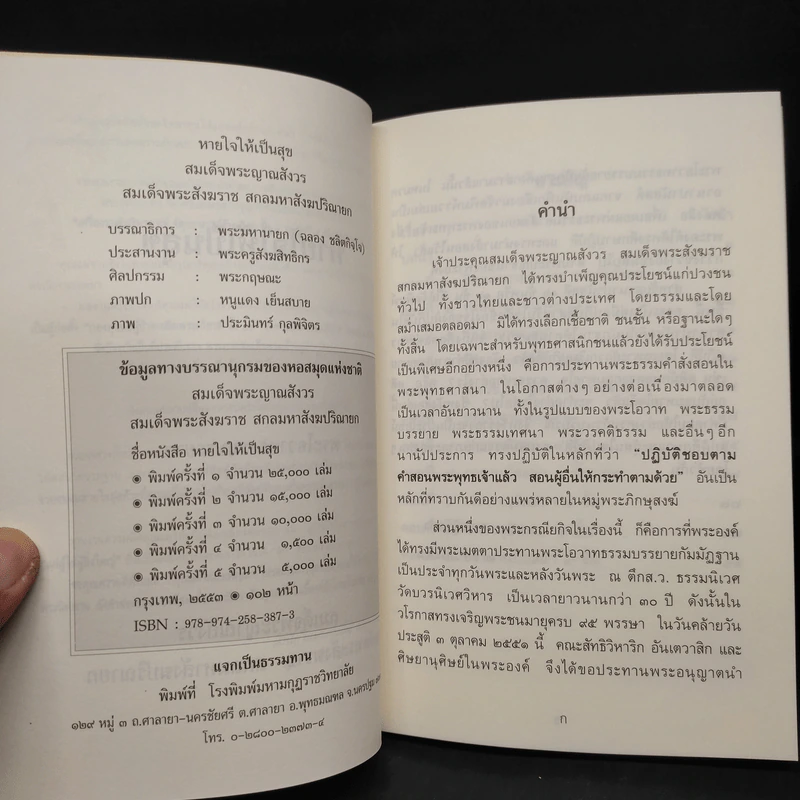 หายใจให้เป็นสุข
สมเด็จพระญาณสังวร
สมเด็จพระสังฆราช สกลมหาสังฆปริณายก
บรรณาธิการ : พระมหานายก (ฉลอง ชลิตกิจฺโจ)
ประสานงาน : พระครูสังฆสิทธิกร
ศิลปกรรม : พระกฤษณะ
ภาพปก : หนูแดง เย็นสบาย
ภาพ : ประมินทร์ กุลพิจิตร
ข้อมูลทางบรรณานุกรมของหอสมุดแห่งชาติ
สมเด็จพระญาณสังวร
สมเด็จพระสังฆราช สกลมหาสังฆปริณายก
ชื่อหนังสือ หายใจให้เป็นสุข
◉ พิมพ์ครั้งที่ ๑ จำนวน ๒๕,๐๐๐ เล่ม
◉ พิมพ์ครั้งที่ ๒ จำนวน ๑๕,๐๐๐ เล่ม
◉ พิมพ์ครั้งที่ ๓ จำนวน ๑๐,๐๐๐ เล่ม
◉ พิมพ์ครั้งที่ ๔ จำนวน ๑,๕๐๐ เล่ม
◉ พิมพ์ครั้งที่ ๕ จำนวน ๕,๐๐๐ เล่ม
กรุงเทพ, ๒๕๕๓ ◉ ๑๐๒ หน้า
ISBN : 978-974-258-387-3
แจกเป็นธรรมทาน
พิมพ์ที่ โรงพิมพ์มหามกุฏราชวิทยาลัย
๑๒๙ หมู่ ๓ ถ.ศาลายา-นครชัยศรี ต.ศาลายา อ.พุทธมณฑล จ.นครปฐม
โทร. ๐-๒๘๐๐-๒๓๗๓-๔
คำนำ
เจ้าประคุณสมเด็จพระญาณสังวร สมเด็จพระสังฆราช
สกลมหาสังฆปริณายก ได้ทรงบำเพ็ญคุณประโยชน์แก่ปวงชน
ทั่วไป ทั้งชาวไทยและชาวต่างประเทศ โดยธรรมและโดย
สม่ำเสมอตลอดมา มิได้ทรงเลือกเชื้อชาติ ชนชั้น หรือฐานะใดๆ
ทั้งสิ้น โดยเฉพาะสำหรับพุทธศาสนิกชนแล้วยังได้รับประโยชน์
เป็นพิเศษอีกอย่างหนึ่ง คือการประทานพระธรรมคำสั่งสอนใน
พระพุทธศาสนา ในโอกาสต่างๆ อย่างต่อเนื่องมาตลอด
เป็นเวลาอันยาวนาน ทั้งในรูปแบบของพระโอวาท พระธรรม
บรรยาย พระธรรมเทศนา พระวรคติธรรม และอื่นๆ อีก
นานัปประการ ทรงปฏิบัติในหลักที่ว่า “ปฏิบัติชอบตาม
คำสอนพระพุทธเจ้าแล้ว สอนผู้อื่นให้กระทำตามด้วย” อันเป็น
หลักที่ทราบกันดีอย่างแพร่หลายในหมู่พระภิกษุสงฆ์
ส่วนหนึ่งของพระกรณียกิจในเรื่องนี้ ก็คือการที่พระองค์
ได้ทรงมีพระเมตตาประทานพระโอวาทธรรมบรรยายกัมมัฏฐาน
เป็นประจำทุกวันพระและหลังวันพระ ณ ตึกส.ว. ธรรมนิเวศ
วัดบวรนิเวศวิหาร เป็นเวลายาวนานกว่า ๓๐ ปี ดังนั้นใน
วโรกาสทรงเจริญพระชนมายุครบ ๙๕ พรรษา ในวันคล้ายวัน
ประสูติ ๓ ตุลาคม ๒๕๕๑ นี้ คณะสัทธิวิหาริก อันเตวาสิก และ
ศิษยานุศิษย์ในพระองค์ จึงได้ขอประทานพระอนุญาตนำ
ก